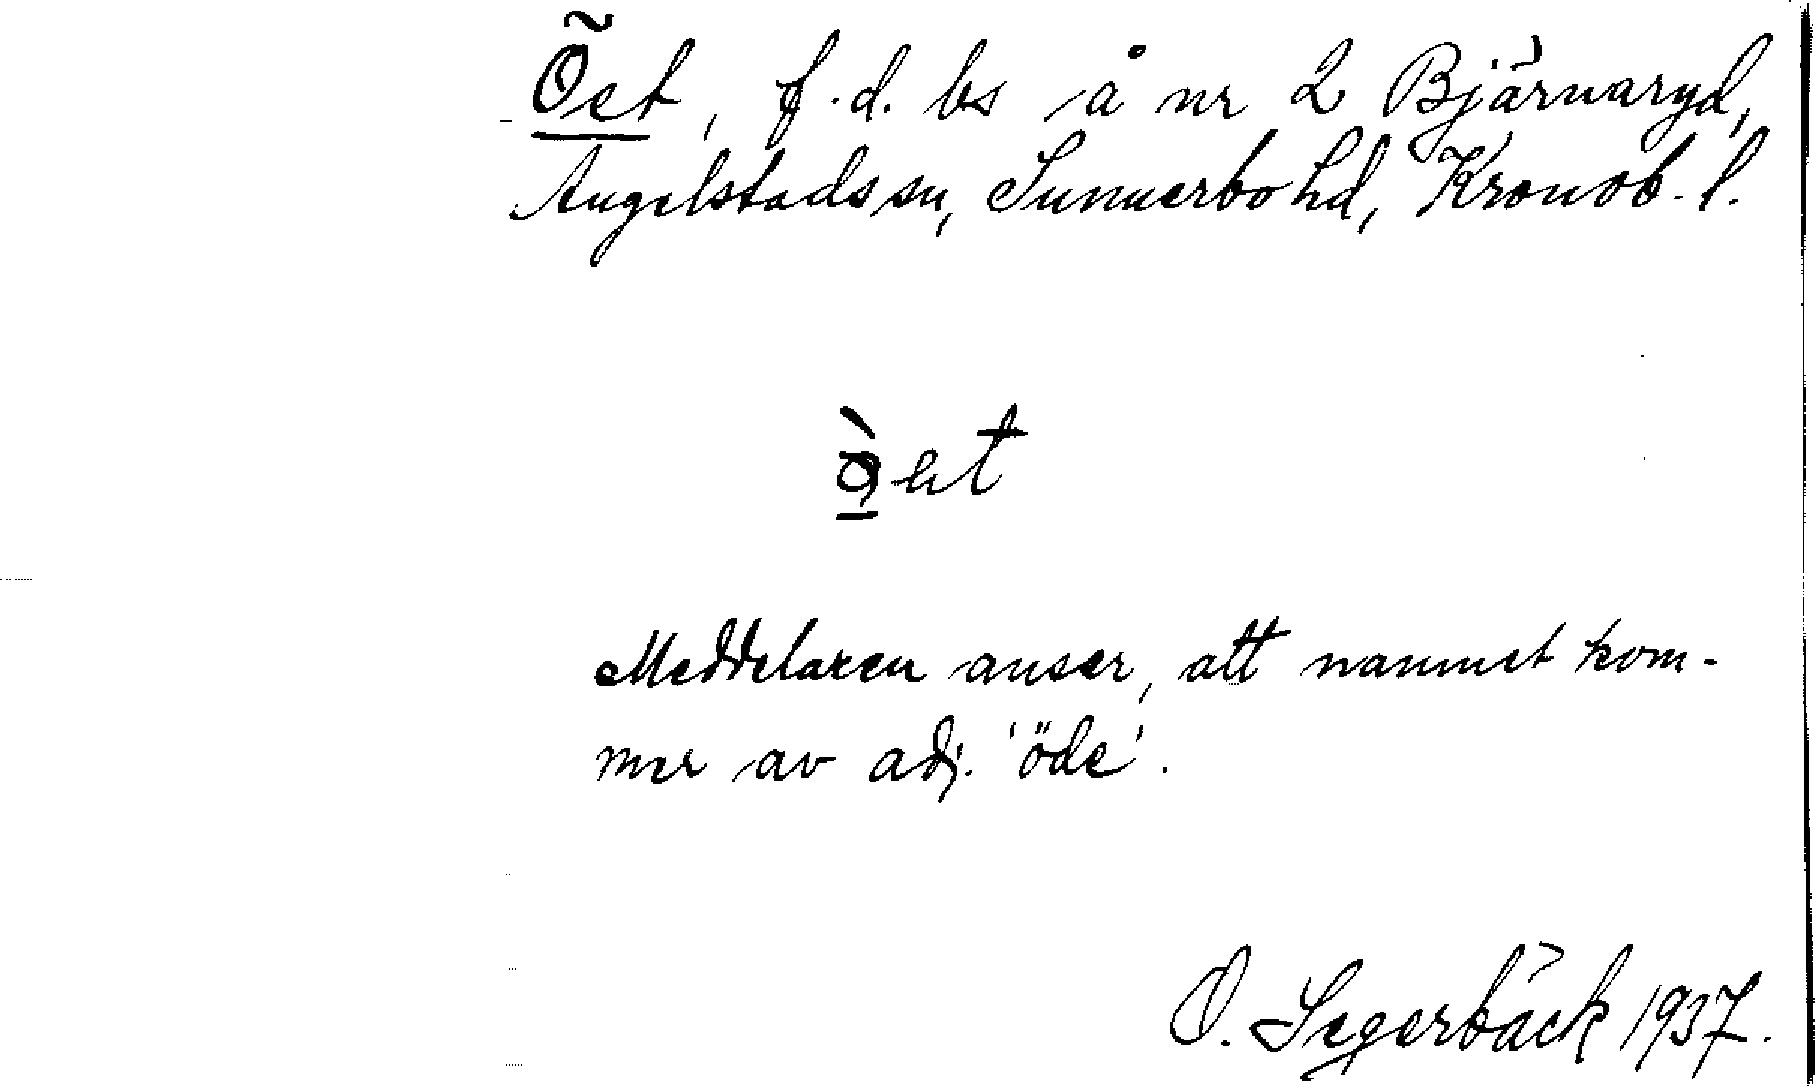 Öet, f.d. bs å nr 2 Bjärnaryd,
Angelstads sn, Sunnerbo hd, Kronob. l.
Meddelaren anser, att namnet kom-
mer av adj. 'öde'.
O. Segerbäck 1937.